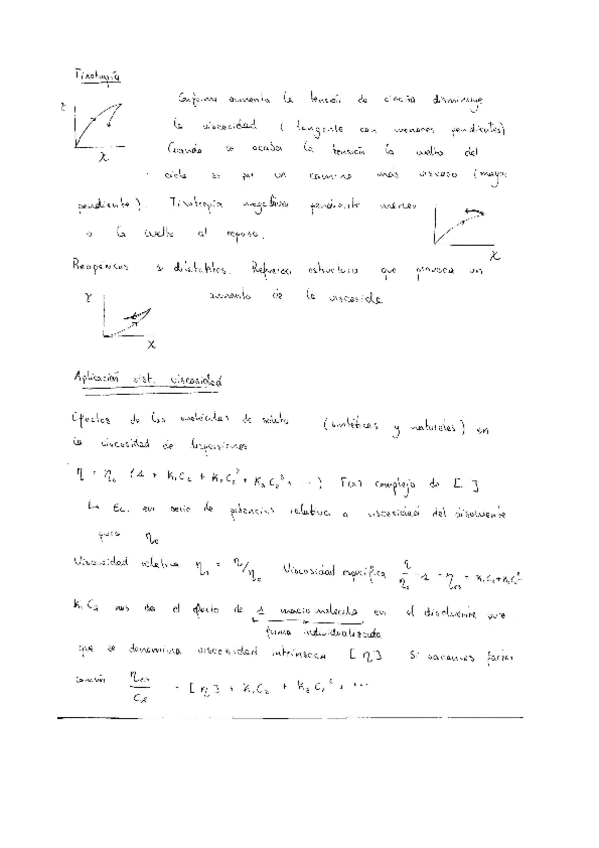 Tixotropía
Conforme aumenta la tensión de cizalla disminuye
la viscosidad (tangente con menores pendientes)
Cuando se acaba la tensión la vuelta del
ciclo es por un camino más viscoso (mayor
pendiente). Tixotropía negativa pendiente menor
a la vuelta al reposo.
Reopéxicas o dilatantes. Refuerza estructura que provoca un
aumento de la viscosidad.
Aplicación vist. viscosidad
Efectos de las moléculas de soluto (sintéticas y naturales) en
la viscosidad de dispersiones
η = η₀ (1 + K₁C₂ + K₂C₂² + K₃C₂³ + ...) F(x) complejo de [ ]
La Ec. en serie de potencias relativa a viscosidad del disolvente
puro η₀
Viscosidad relativa ηᵣ = η/η₀ Viscosidad específica η/η₀ - 1 = ηₑₛ = K₁C₂+K₂C₂²
K₁C₂ nos da el efecto de 1 macromolécula en el disolvente puro
forma individualizada
que se denomina viscosidad intrínseca [η] Si sacamos factor
común ηₑₛ/C₂ = [η] + K₁C₂ + K₂C₂² + ...